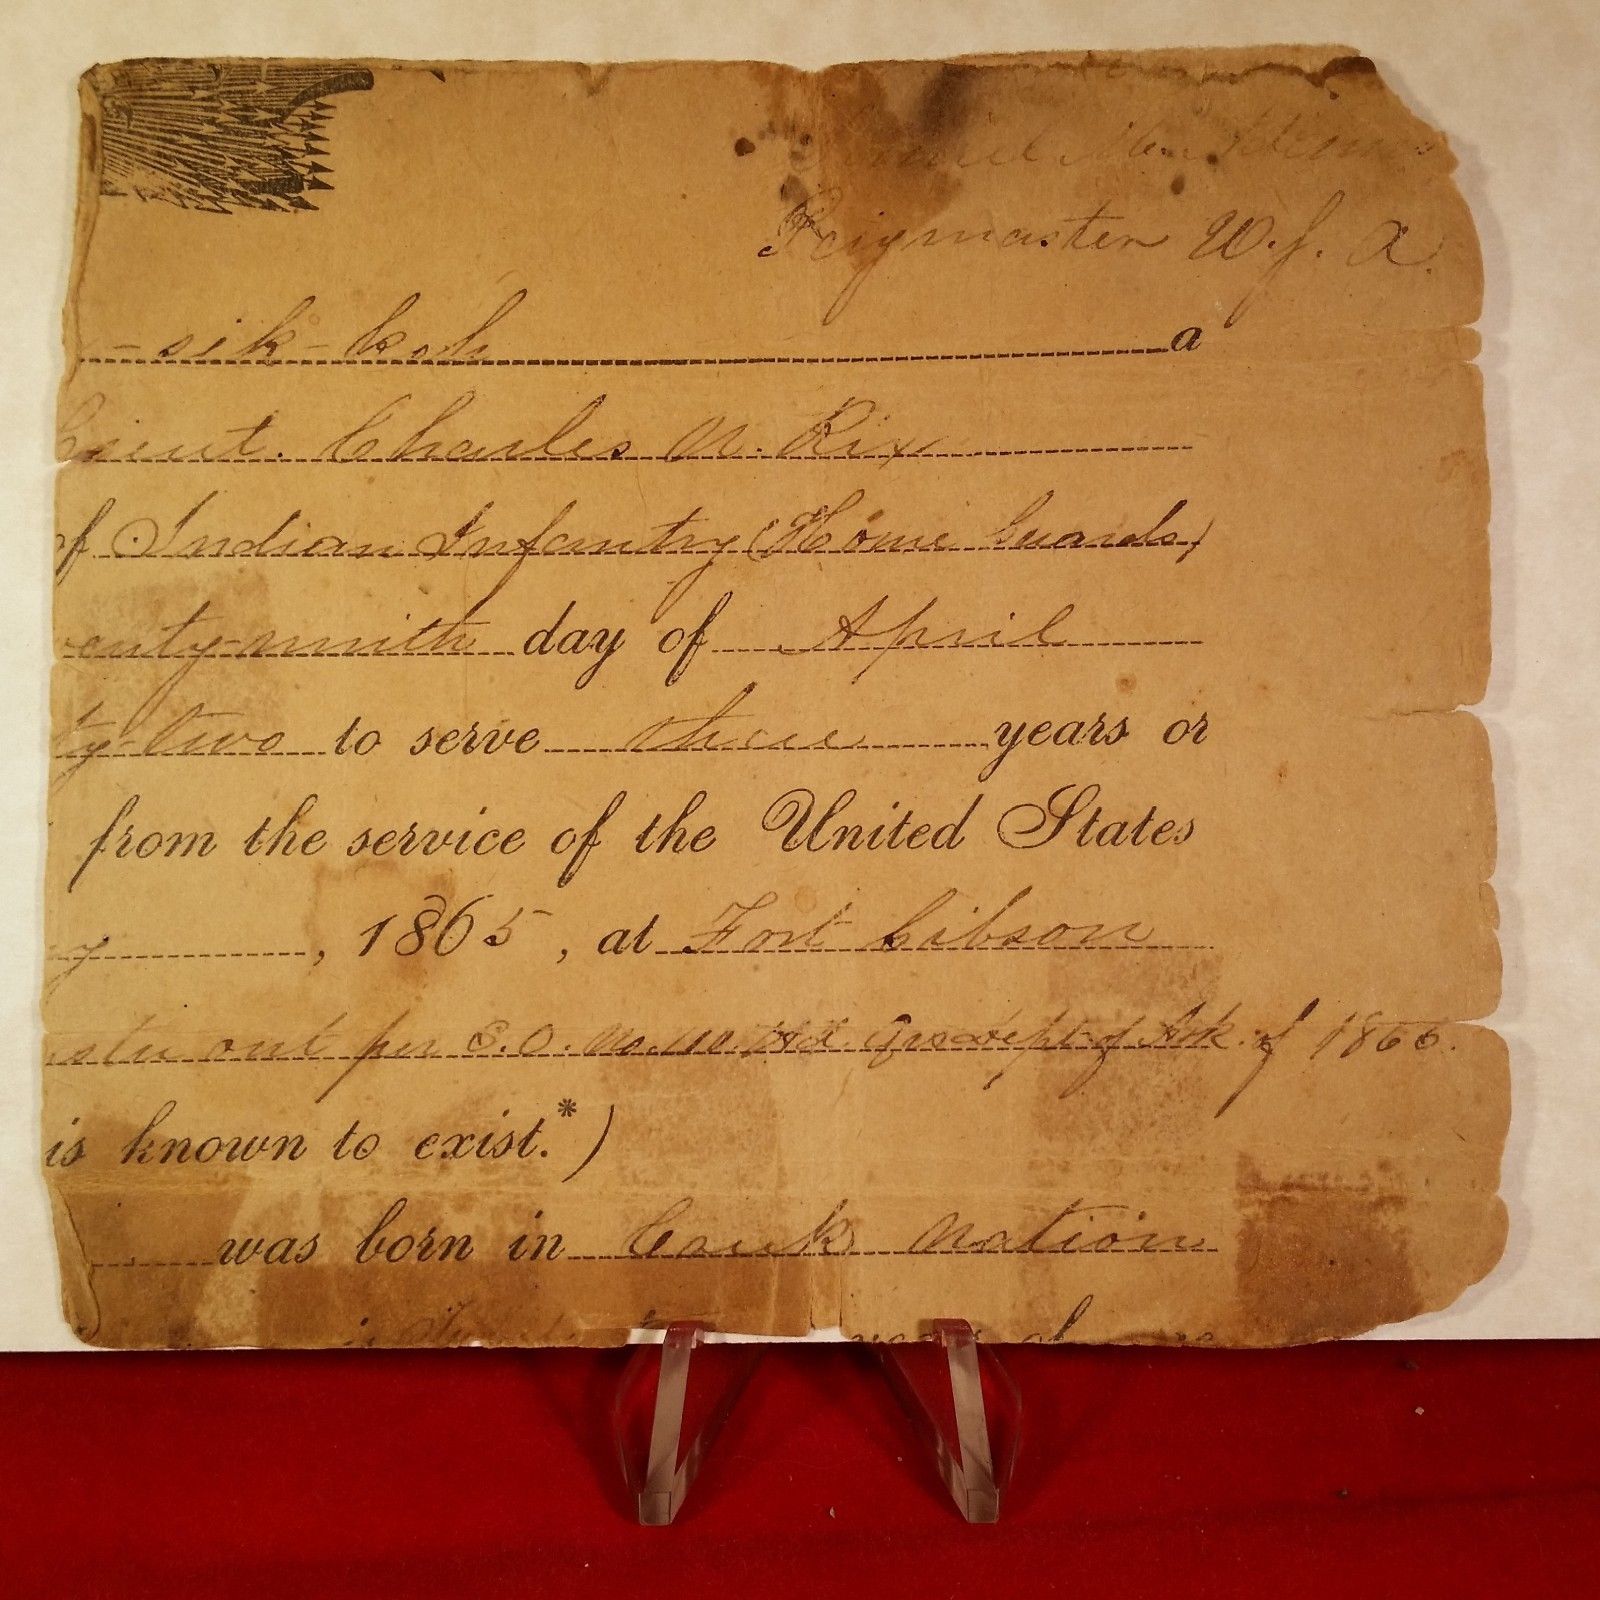 Paymaster U.S.A.
-sik-Coh a
Lieut. Charles N. Rix
of Indian Infantry (Home Guards)
enty-ninth day of April
ty-two to serve three years or
from the service of the United States
y, 1865, at Fort Gibson
out per S.O. No. Dept of Ark. of 1865.
is known to exist.*)
was born in Creek Nation
is years of